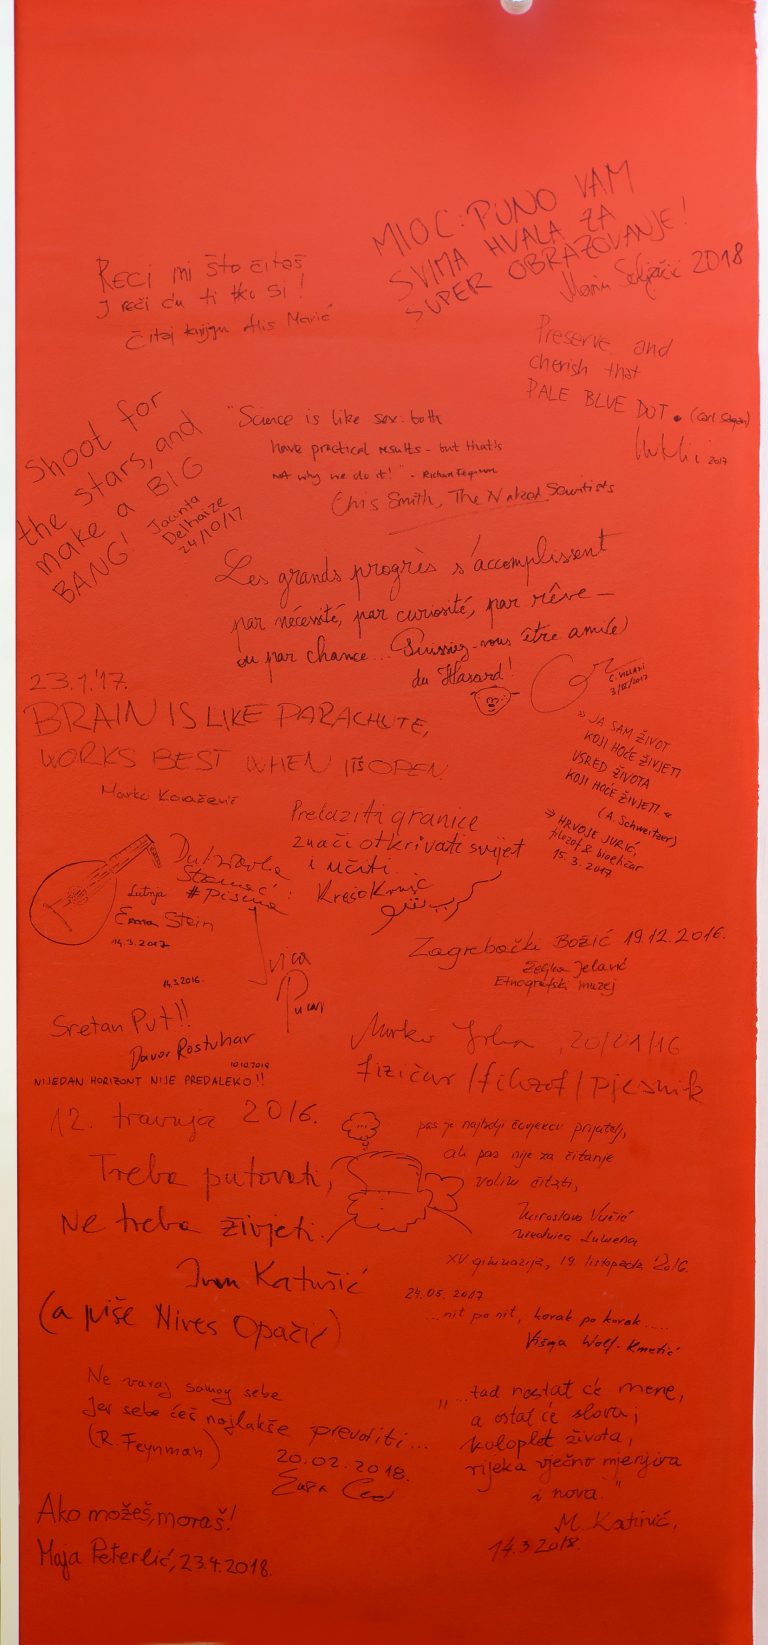 MIOC: PUNO VAM
SVIMA HVALA ZA
SUPER OBRAZOVANJE!
2018
Reci mi što čitaš
I reći ću ti tko si!
Čitaj knjigu Alis Marić
Preserve and
cherish that
PALE BLUE DOT. (Carl Sagan)
2017
Shoot for
the stars, and
make a BIG
BANG!
Jacinta
Delhaize
24/10/17
"Science is like sex: both
have practical results - but that's
not why we do it!" - Richard Feynman
Chris Smith, The Naked Scientists
Les grands progrès s'accomplissent
par nécessité, par curiosité, par rêve –
ou par chance... Puissiez-vous être ami(e)
du Hasard!
C. VILLANI
3/III/2017
23.1.'17.
BRAIN IS LIKE PARACHUTE,
WORKS BEST WHEN IT'S OPEN.
Marko Košiček
» JA SAM ŽIVOT
KOJI HOĆE ŽIVJETI
USRED ŽIVOTA
KOJI HOĆE ŽIVJETI. «
(A. Schweitzer)
→ HRVOJE JURIĆ,
filozof & bioetičar
15.3.2017.
Prelaziti granice
znači otkrivati svijet
i učiti.
Krešo
Dubravka
#pisma
Lutnja
Stein
14.3.2017
Ivica
14.3.2016.
Zagrebački Božić 19.12.2016.
Željka Jelavić
Etnografski muzej
Sretan Put!!
Davor Rostuhar
10.10.2018
NIJEDAN HORIZONT NIJE PREDALEKO!!
Marko 20/01/16
fizičar / filozof / pjesnik
12. travnja 2016.
Treba putovati,
Ne treba živjeti.
Ivan Katušić
(a piše Nives Opačić)
pas je najbolji čovjekov prijatelj,
ali pas nije za čitanje
volim čitati,
Miroslava Vučić
urednica Lumena
XV gimnazija, 19. listopada 2016.
24.05.2017
...nit po nit, korak po korak.....
Višnja Wolf-Kmetić
Ne varaj samog sebe
Jer sebe ćeš najlakše prevariti...
(R. Feynman)
20.02.2018.
„...tad nestat će mene,
a ostat će slova;
koloplet života,
rijeka vječno mjenjiva
i nova."
M. Katinić,
14.3.2018.
Ako možeš, moraš!
Maja Peterlić, 23.4.2018.